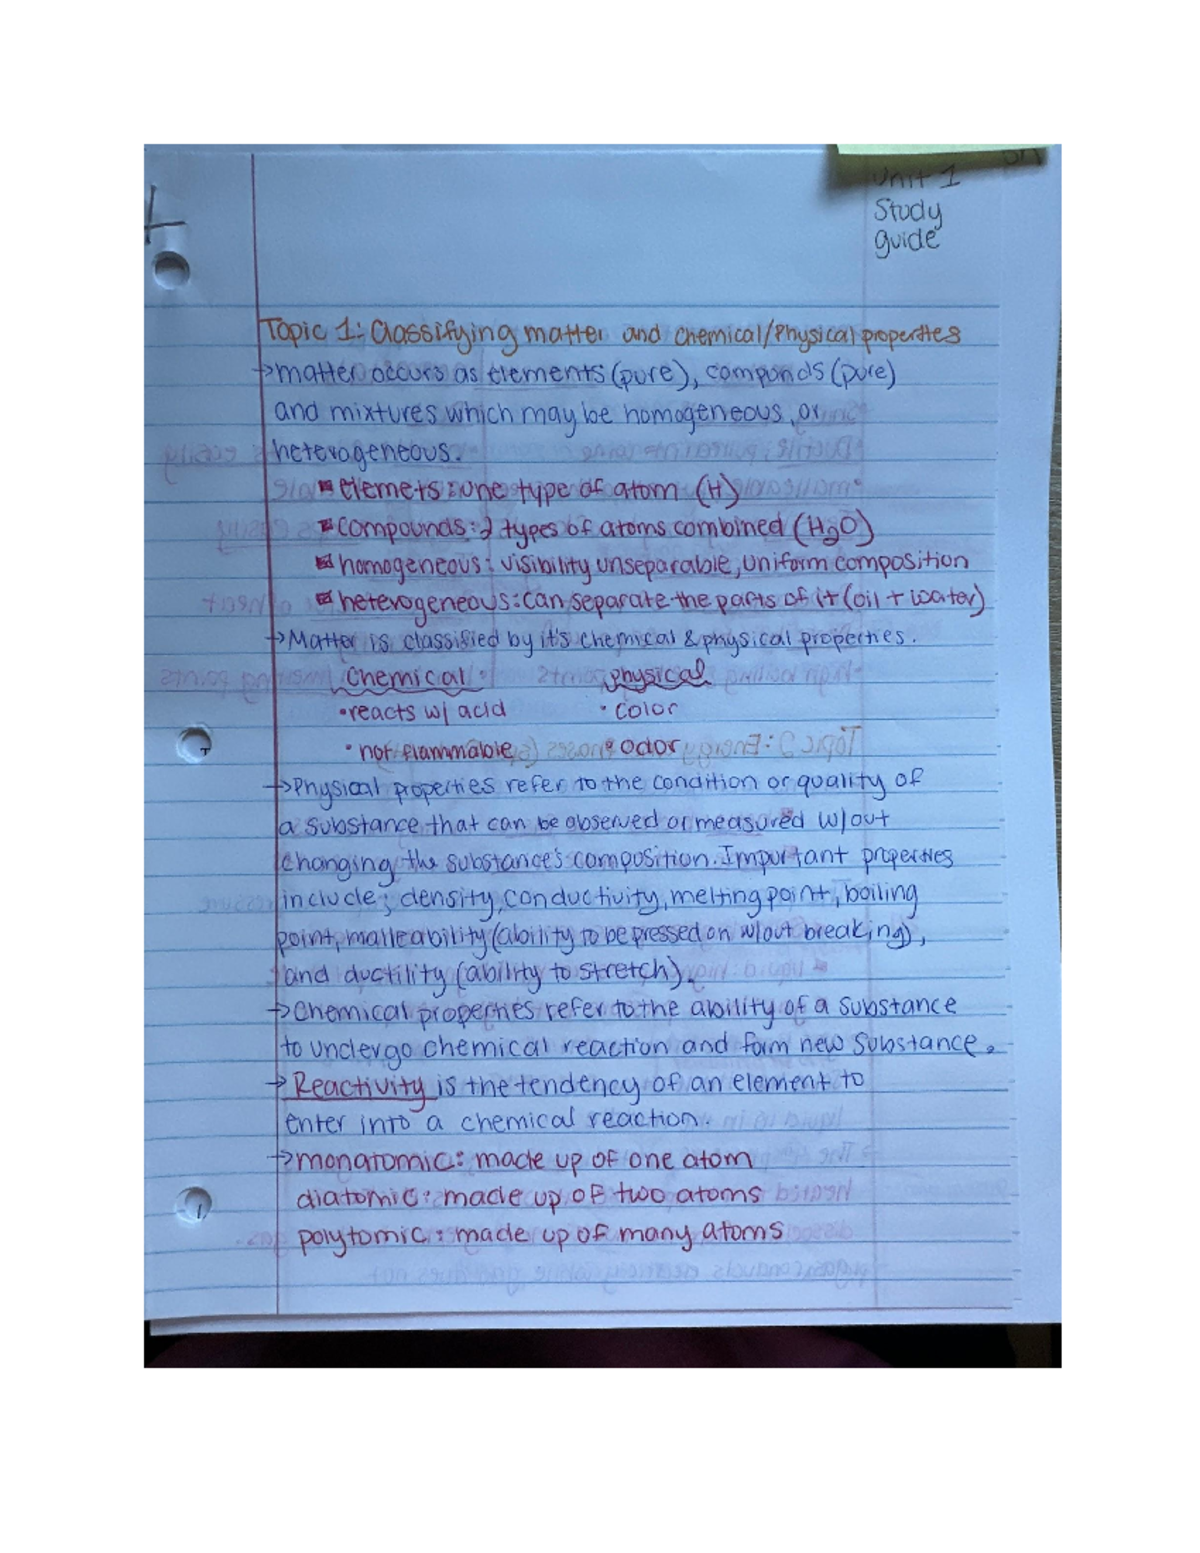 Unit 1
Study
guide
Topic 1: Classifying matter and Chemical/Physical properties
→matter occurs as elements (pure), compunds (pure)
and mixtures which may be homogeneous, or
heterogeneous.
elemets: one type of atom (H)
compounds: 2 types of atoms combined (H₂O)
homogeneous: visibility unseparable, uniform composition
heterogeneous: can separate the parts of it (oil + water)
→Matter is classified by it's chemical & physical properties.
Chemical physical
•reacts w/ acid •color
•not flammable •odor
→Physical properties refer to the condition or quality of
a substance that can be observed or measured w/out
changing the substance's composition. Important properties
include; density, conductivity, melting point, boiling
point, malleability (ability to be pressed on w/out breaking),
and ductility (ability to stretch).
→Chemical properties refer to the ability of a substance
to undergo chemical reaction and form new substance.
→Reactivity is the tendency of an element to
enter into a chemical reaction.
→monatomic: made up of one atom
diatomic: made up of two atoms
polytomic: made up of many atoms